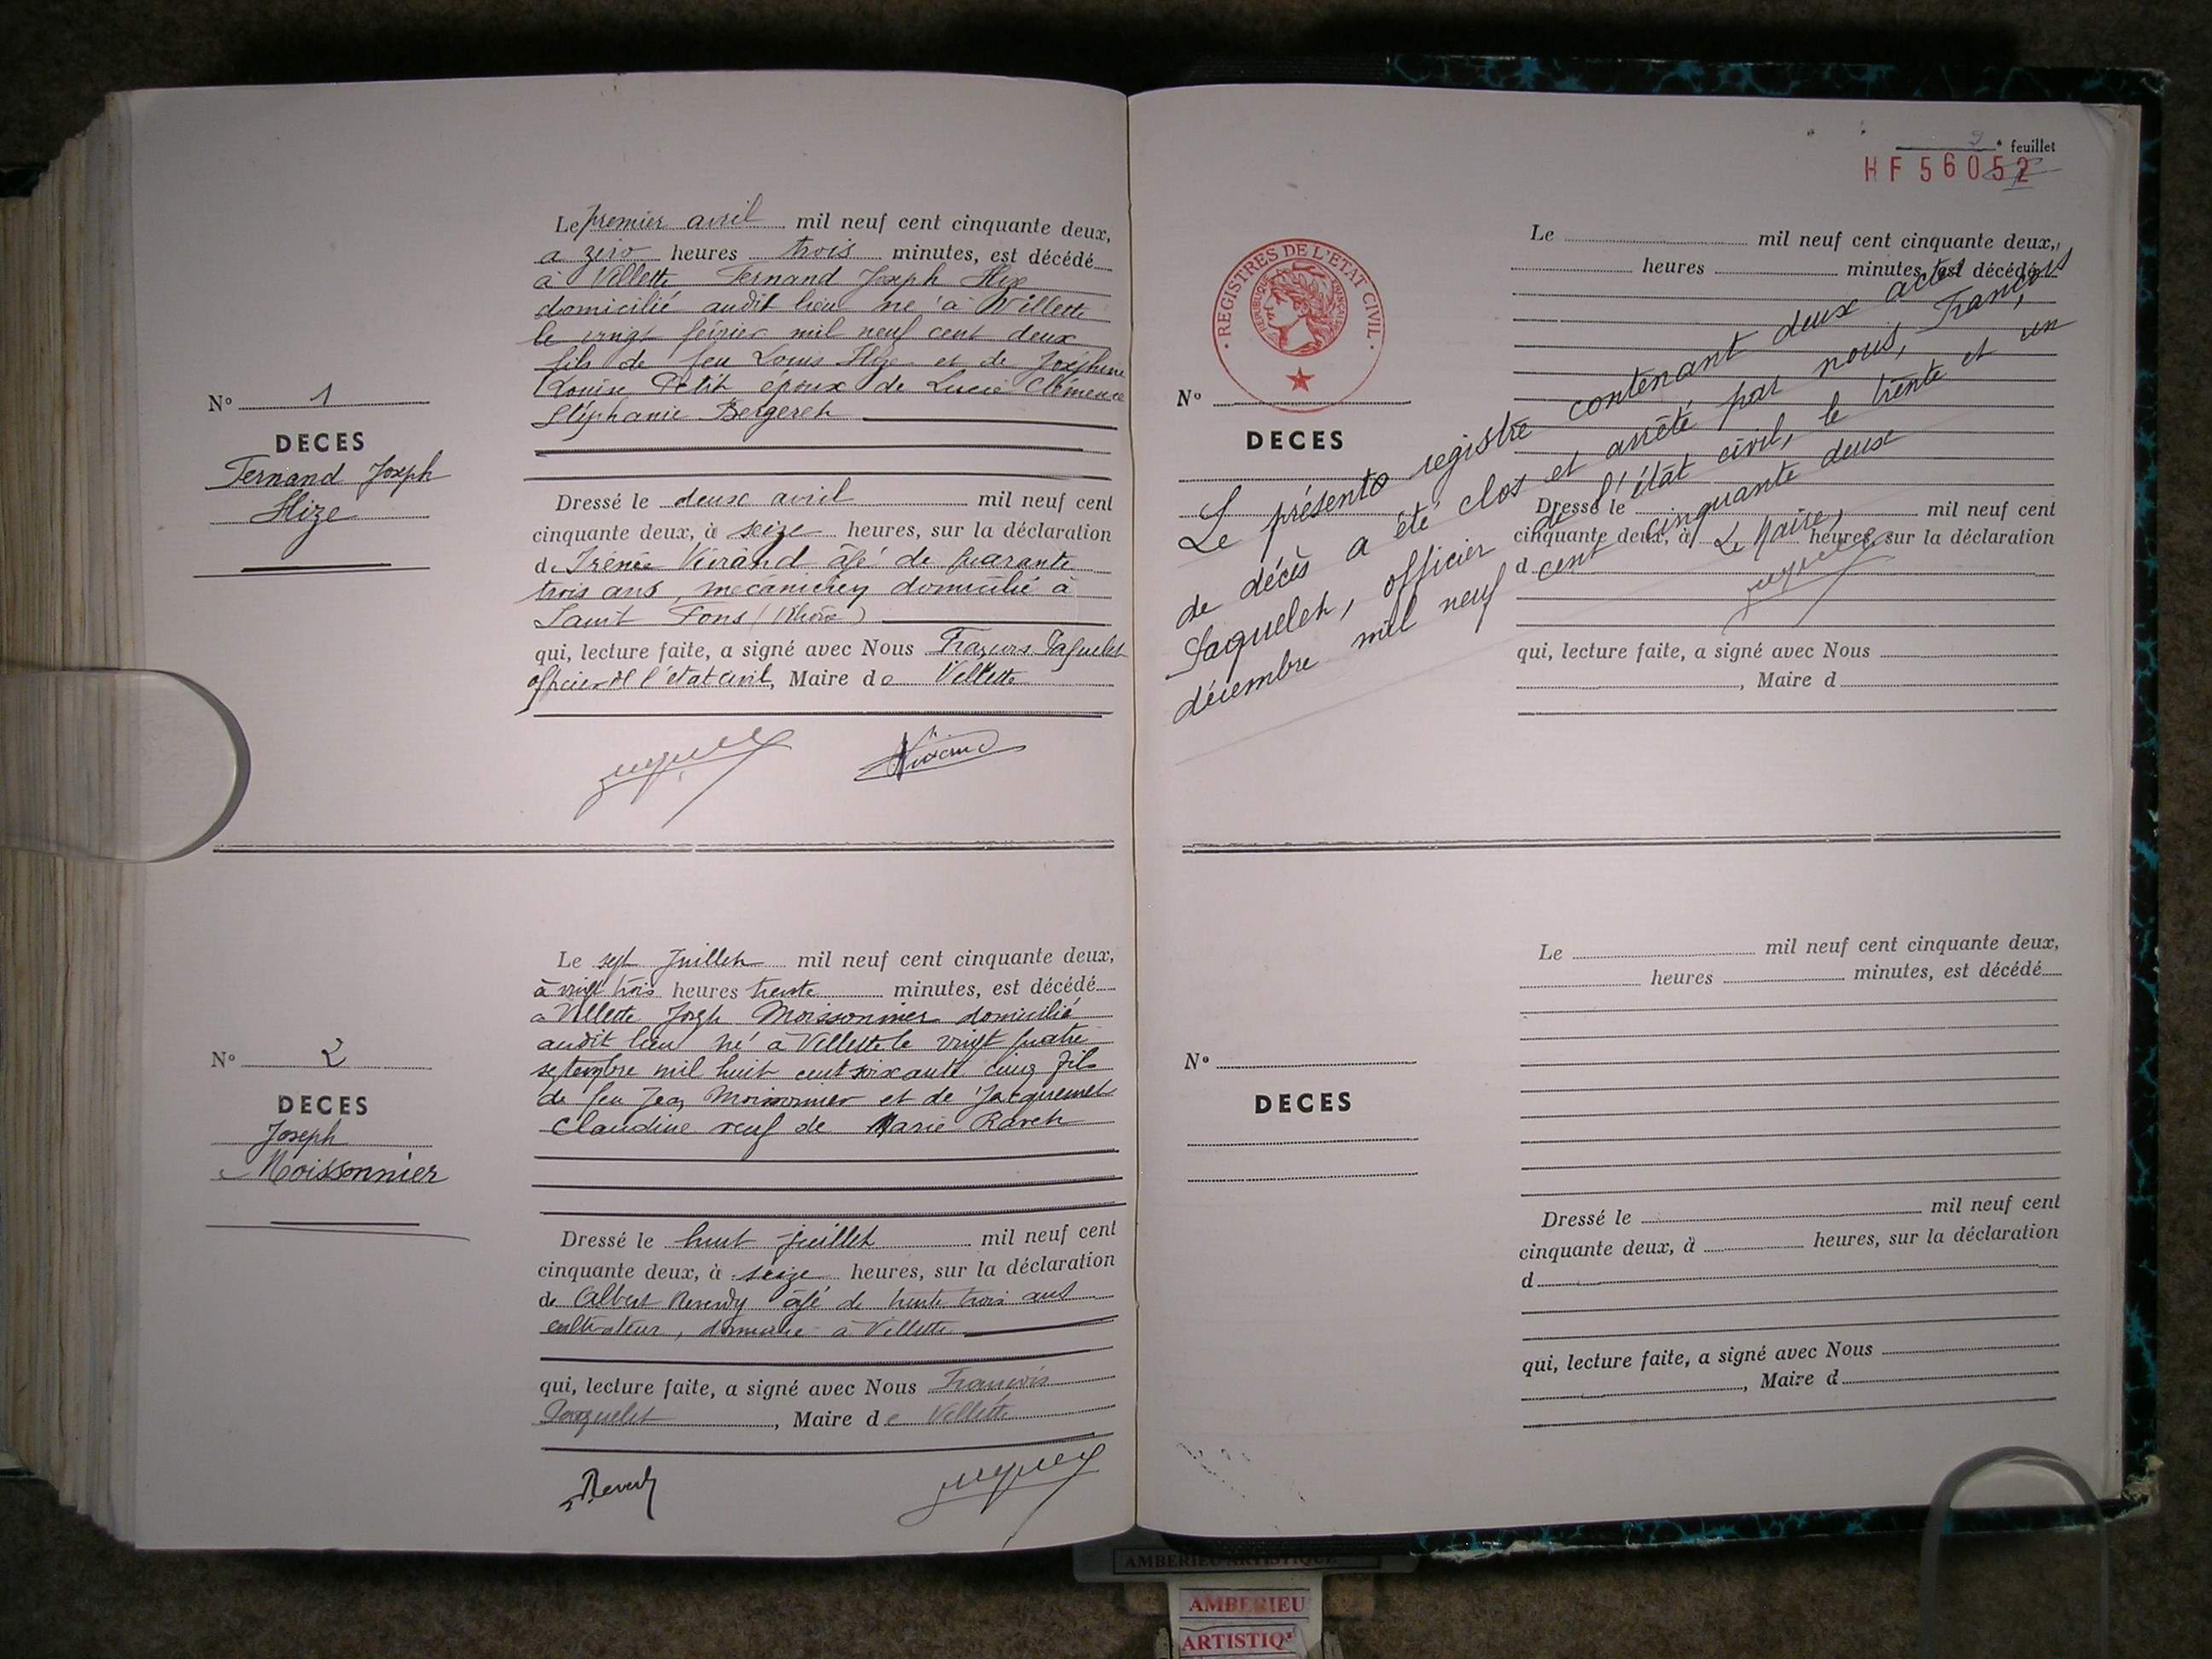 Le premier avril mil neuf cent cinquante deux,
a zéro heures trois minutes, est décédé
à Villette Fernand Joseph Hize
domicilié audit lieu né à Villette
le vingt février mil neuf cent deux
fils de feu Louis Hize et de Joséphine
Louise Petit époux de Lucie Clémence
Stéphanie Bergeret
Nº 1
DECES
Fernand Joseph
Hize
Dressé le deux avril mil neuf cent
cinquante deux, à seize heures, sur la déclaration
de Irénée Vivrand âgé de quarante
trois ans, mécanicien domicilié à
Saint Fons (Rhône)
qui, lecture faite, a signé avec Nous François Jaquelet
officier de l'état civil, Maire de Villette
Le sept Juillet mil neuf cent cinquante deux,
à vingt trois heures trente minutes, est décédé
a Villette Joseph Moissonnier domicilié
audit lieu né à Villette le vingt quatre
septembre mil huit cent soixante cinq fils
de feu Jean Moissonnier et de Jacquemet
Claudine veuf de Marie Ravet
Nº 2
DECES
Joseph
Moissonnier
Dressé le huit juillet mil neuf cent
cinquante deux, à seize heures, sur la déclaration
de Albert Reverdy âgé de trente trois ans
cultivateur, domicilié à Villette
qui, lecture faite, a signé avec Nous François
Jaquelet, Maire de Villette
2e feuillet
HF 56052
REGISTRES DE L'ETAT CIVIL
REPUBLIQUE FRANÇAISE
Le mil neuf cent cinquante deux,
heures minutes, est décédé
Nº
DECES
Le présente registre contenant deux actes
de décès a été clos et arrêté par nous, François
Jaquelet, officier de l'état civil, le trente et un
décembre mil neuf cent cinquante deux
Le Maire,
Dressé le mil neuf cent
cinquante deux, à heures, sur la déclaration
d
qui, lecture faite, a signé avec Nous
, Maire d
Le mil neuf cent cinquante deux,
heures minutes, est décédé
Nº
DECES
Dressé le mil neuf cent
cinquante deux, à heures, sur la déclaration
d
qui, lecture faite, a signé avec Nous
, Maire d
AMBERIEU ARTISTIQUE
AMBERIEU
ARTISTIQ